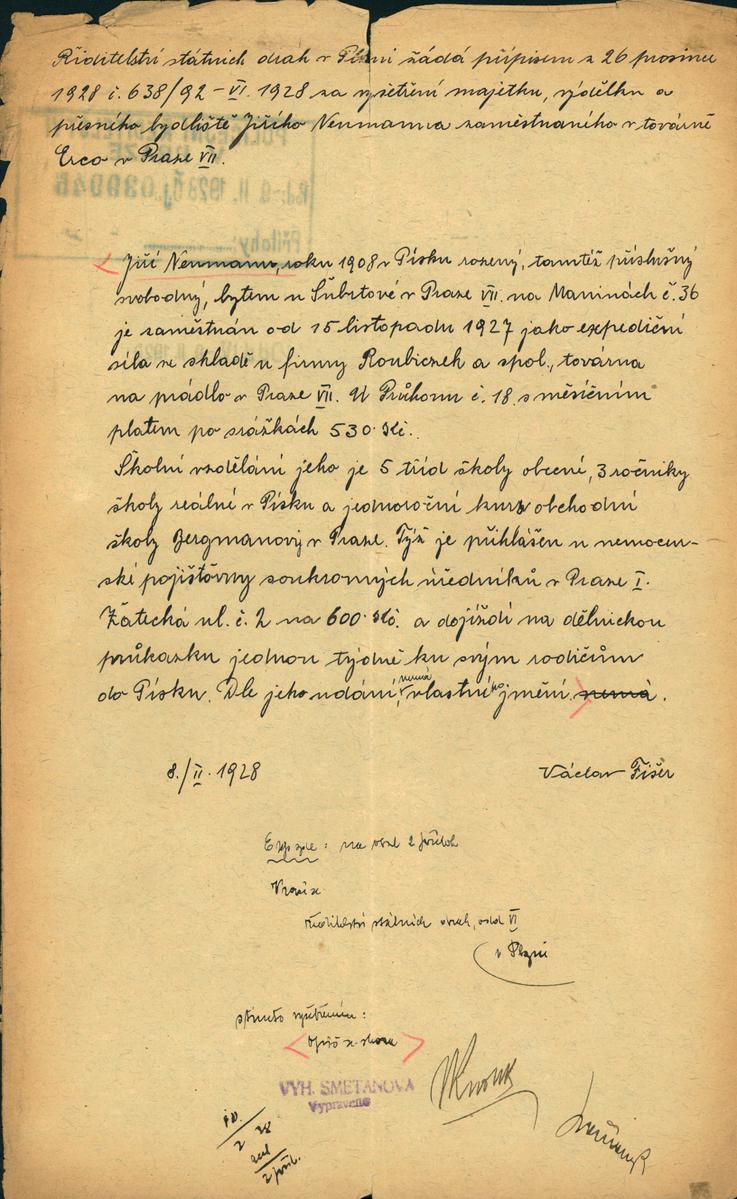 Řiditelství státních drah v Plzni žádá přípisem z 26 prosince
1928 č. 638/92 – VI. 1928 za vyšetření majetku, výdělku a
přesného bydliště Jiřího Neumanna zaměstnaného v továrně
Erco v Praze VII.
Jiří Neumann, roku 1908 v Písku rozený, tamtéž příslušný
svobodný, bytem u Šubrtové v Praze VII. na Maninách č. 36
je zaměstnán od 15 listopadu 1927 jako expediční
síla ze skladě u firmy Roubiczek a spol., továrna
na prádlo v Praze VII. U Průhonu č. 18. s měsíčním
platem po srážkách 530· Kč.
Školní vzdělání jeho je 5 tříd školy obecné, 3 ročníky
školy reálné v Písku a jednoroční kurs obchodní
školy Bergmanovy v Praze. Týž je přihlášen u nemocen-
ské pojišťovny soukromých úředníků v Praze I.
Žatecká ul. č. 2 na 600· Kč. a dojíždí na dělnickou
průkazku jednou týdně ku svým rodičům
do Písku. Dle jeho udání, nemá vlastního jmění. nemá.
8./II. 1928
Václav Fišer
na 2 příloh
Vrací se
Ředitelství státních drah, odd. VI
v Plzni
s tímto vyšetřením:
Opis se shora
VYH. SMETANOVA
Vypraveno
2 příl.
Přílohy: